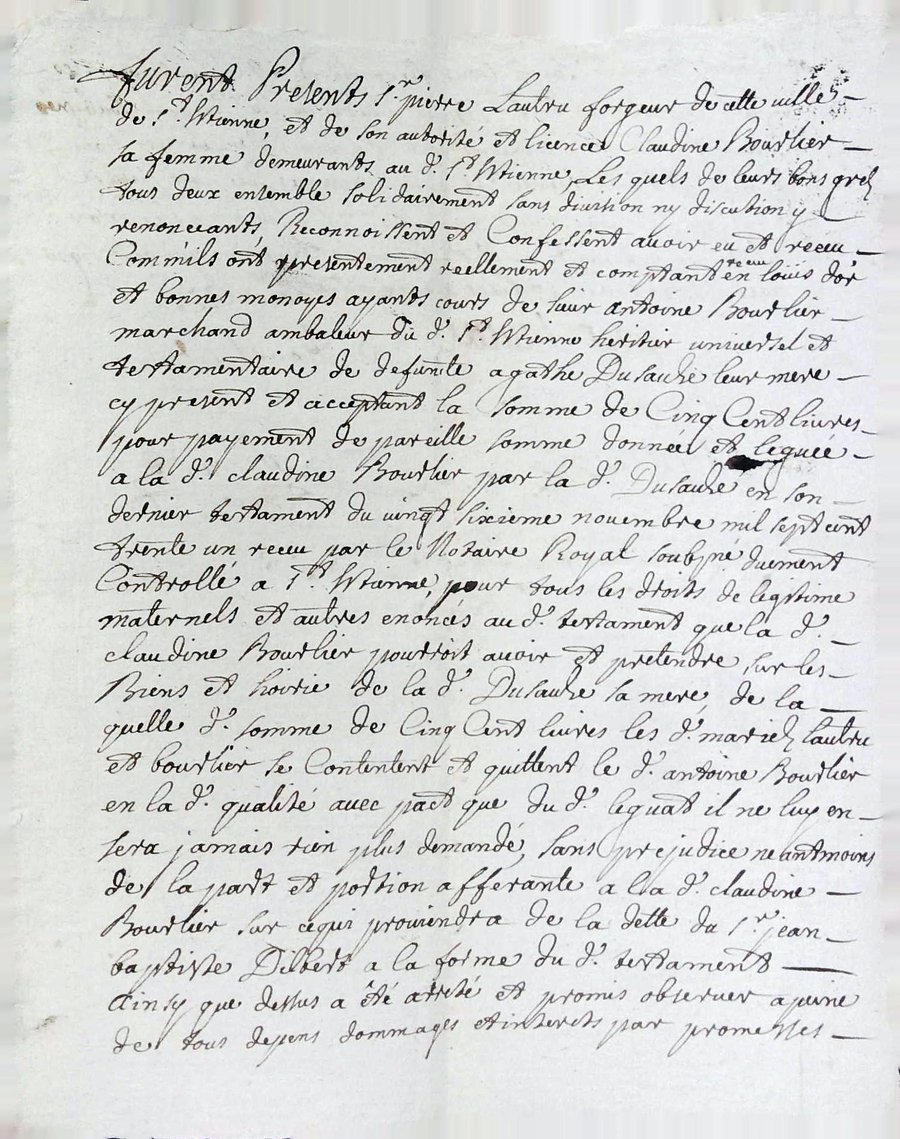 furent Presents Sr. pierre Lautru forgeur de cette ville
de St. Etienne, et de son autorité et licence Claudine Bourlier
sa femme demeurants au d. St. Etienne, Les quels de leurs bons grez
tous deux ensemble solidairement sans diuision ny discution y
renonceants Reconnoissent et Confessent auoir eu et receu
Comm'ils ônt presentement reellement et comptant receu en louis dor
et bonnes monoyes ayants cours de sieur antoine Bourlier
marchand ambaleur du d. St. Etienne heritier uniuersel et
testamentaire de defunte agathe Dusauze leur mere
cy present et acceptant la somme de Cinq Cent liures
pour payement de pareille somme donnée et leguée
a la d. claudine Bourlier par la d. Dusauze en son
dernier testament du uingt sixieme nouembre mil sept cent
trente un receu par le Notaire Royal soubsné duement
Controllé a St. Etienne, pour tous les droits de legitime
maternels et autres enoncés au d. testament que la d.
claudine Bourlier pourroit auoir et pretendre sur les
Biens et hoirie de la d. Dusauze sa mere, de la
quelle d. somme de Cinq Cent liures les d. mariez Lautru
et bourlier se Contentent et quittent le d. antoine Bourlier
en la d. qualité auec pact que du d. leguat il ne luy en
sera jamais rien plus demandé, sans prejudice neantmoins
de la part et portion afferante a la d. claudine
Bourlier sur cequi prouiendra de la dette du Sr. jean
baptiste Dibert a la forme du d. testament
Ainsy que dessus a été arreté et promis obseruer apeine
de tous depens dommages et interets par promesses